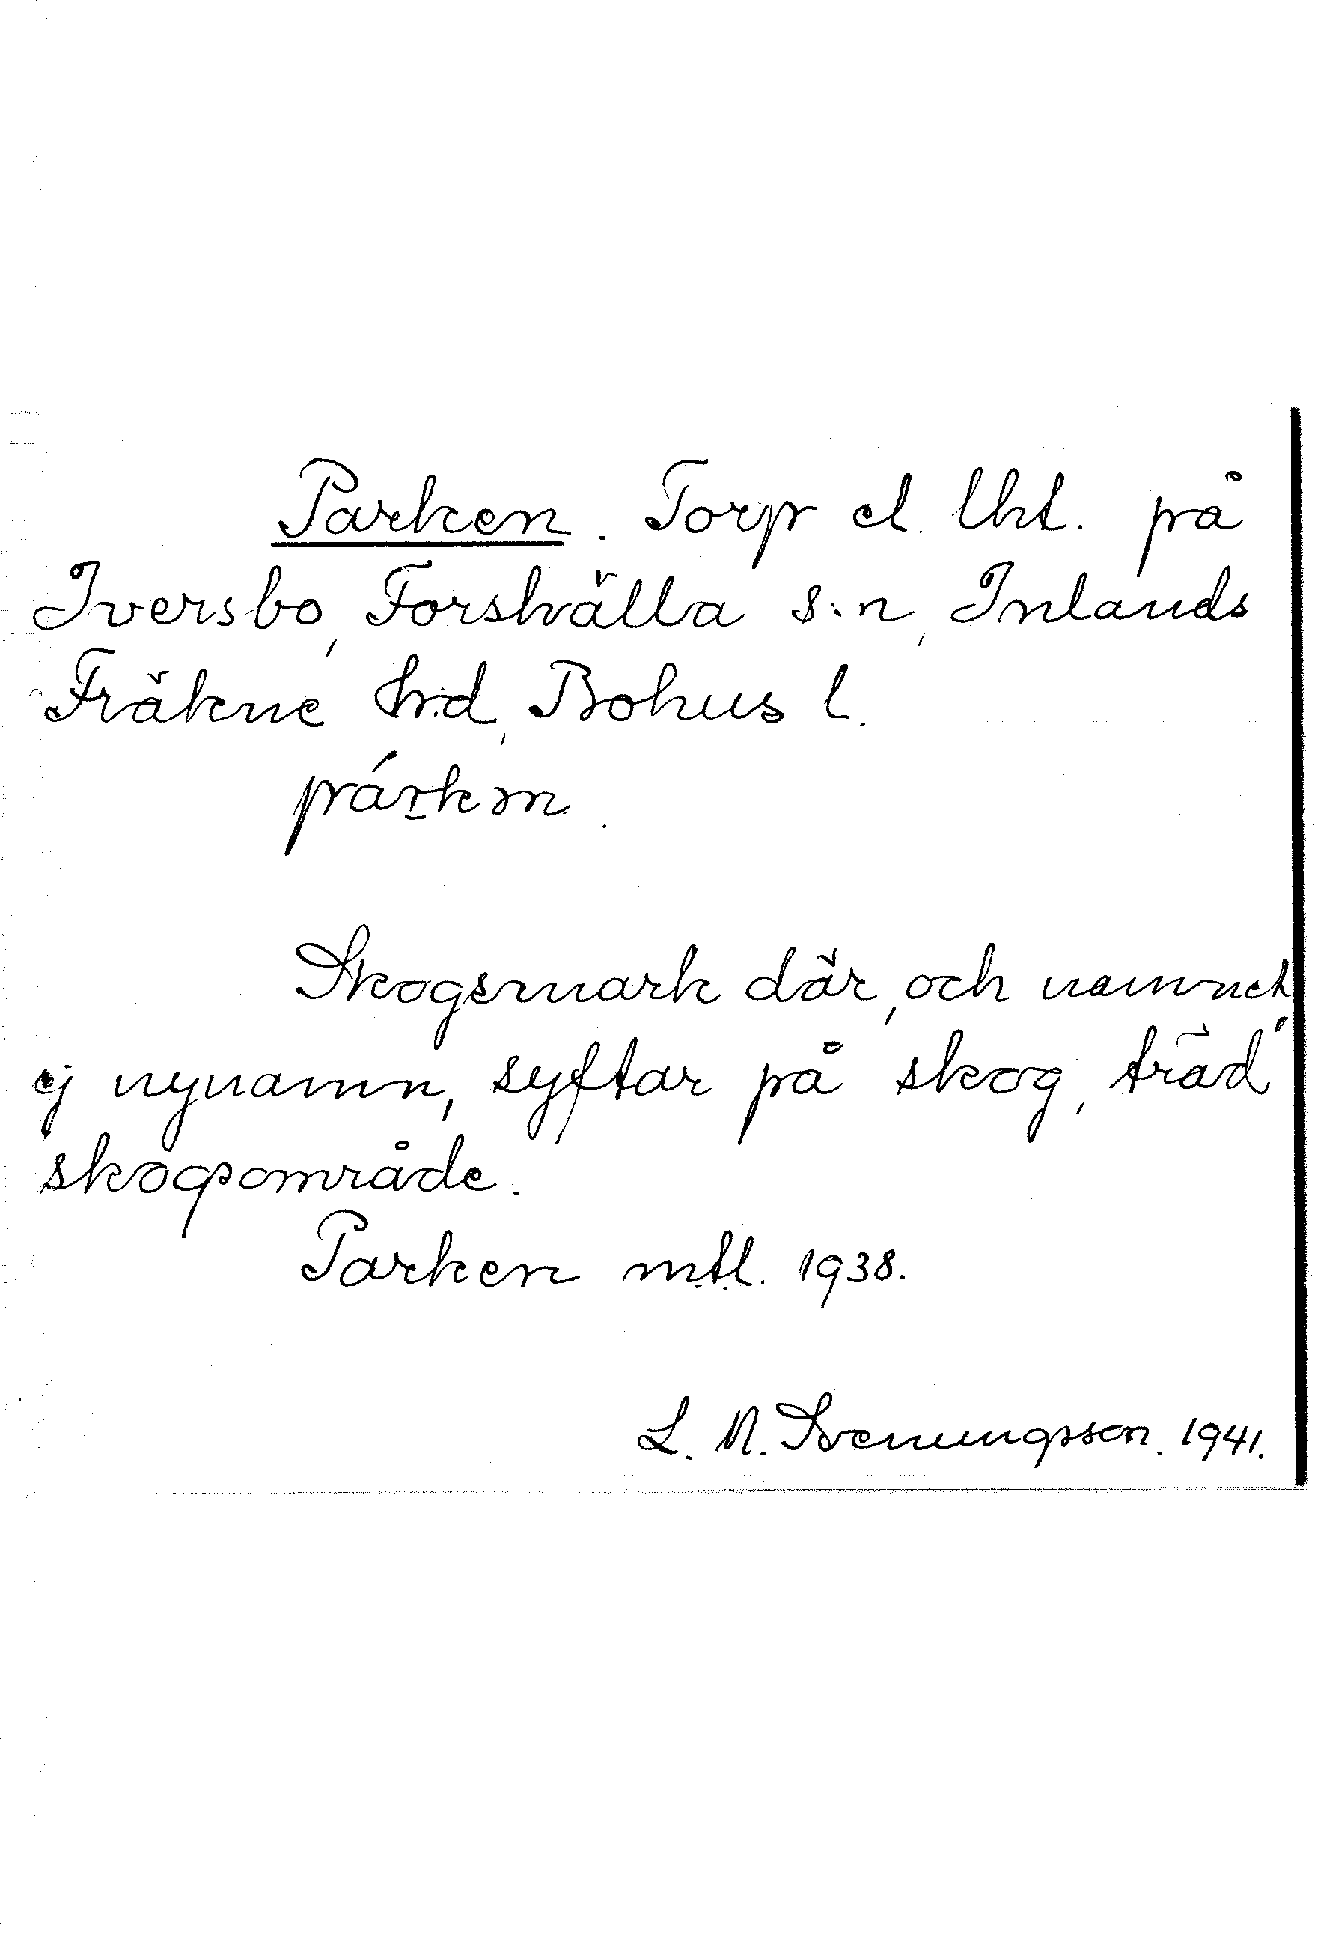 Parken. Torp el. lht. på
Iversbo, Forshälla s:n, Inlands
Fräkne hd, Bohus l.
párkən.
Skogsmark där, och namnet
ej nynamn, syftar på skog, träd"
skogsområde.
Parken mtl. 1938.
L. N. Svenungsson. 1941.